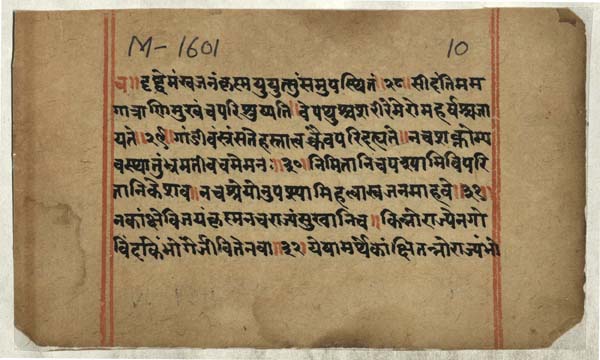 M-1601 10
च॥दृष्ट्वेमंस्वजनंकृष्णयुयुत्सुंसमुपस्थितं॥२८॥सीदंतिमम
गात्राणिमुखंचपरिशुष्यति॥वेपथुश्चशरीरेमेरोमहर्षश्चजा
यते॥२९॥गांडीवंस्रंसतेहस्तात्वक्चैवपरिदह्यते॥नचशक्नोम्य
वस्थातुंभ्रमतीवचमेमनः॥३०॥निमितानिचपश्यामिविपरि
तानिकेशव॥नचश्रेयोनुपश्यामिहत्वास्वजनमाहवे॥३१॥
नकांक्षेविजयंकृष्णनचराज्यंसुखानिच॥किंनोराज्येनगो
विंदकिंभोगैर्जीवितेनवा॥३२॥येषामर्थेकांक्षितंनोराज्यंभो